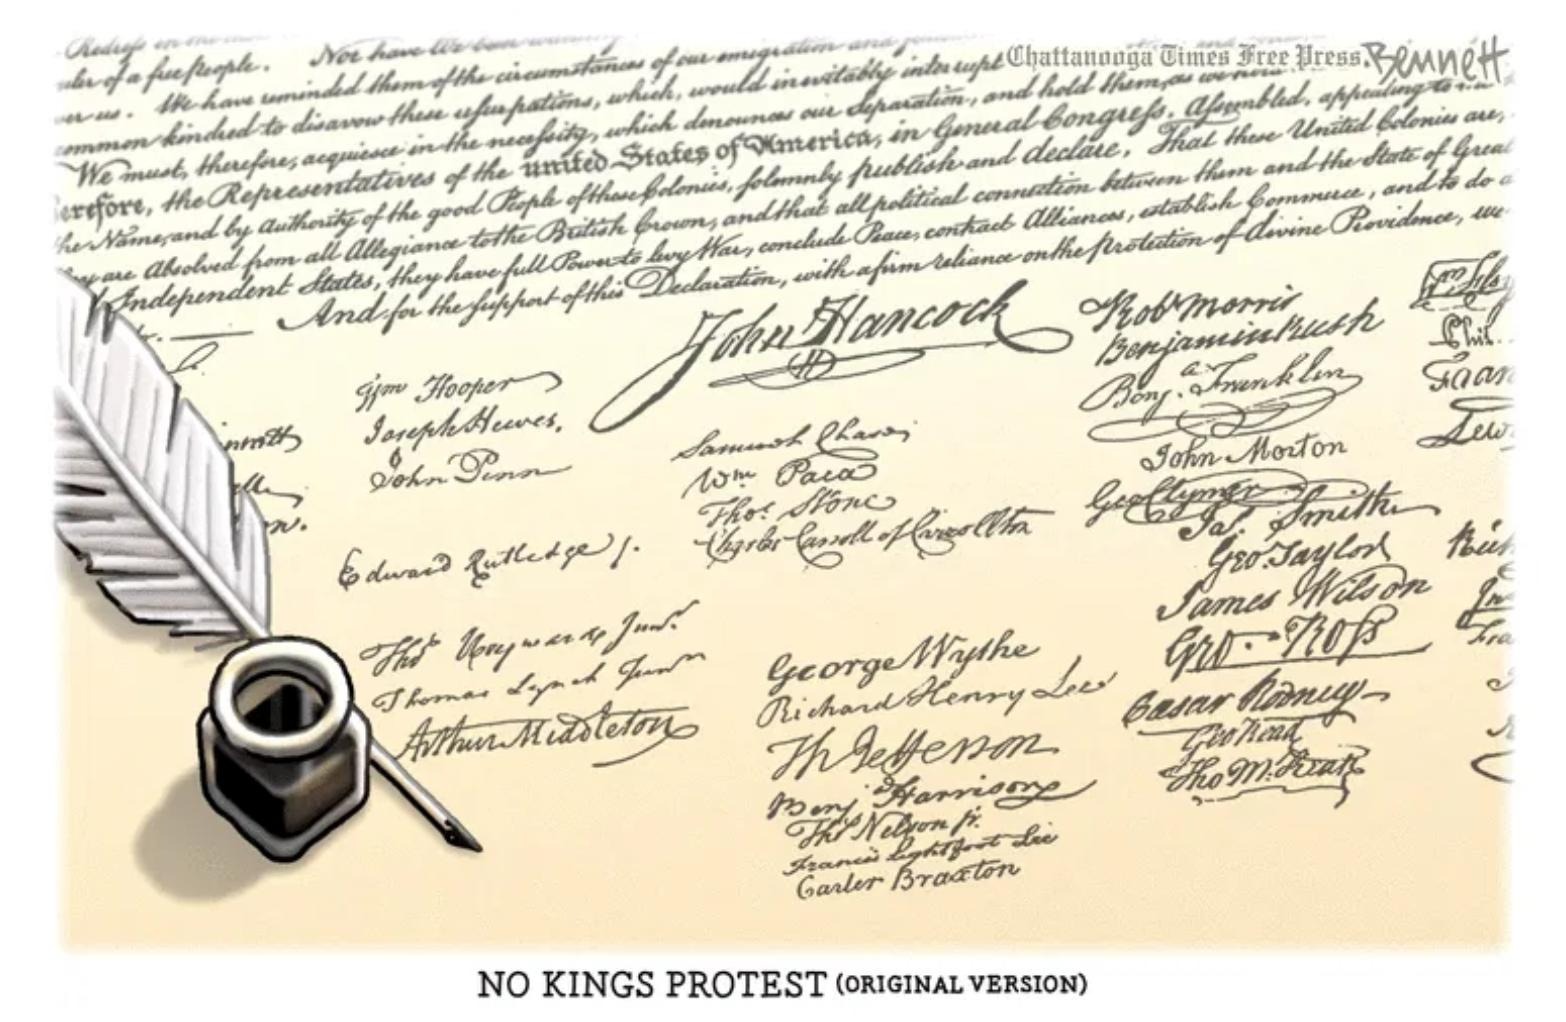 Redress in the
of a free People. Nor have We been
Chattanooga Times Free Press. Bennett
us. We have reminded them of the circumstances of our emigration and
common kindred to disavow these usurpations, which, would inevitably interrupt
We must, therefore, acquiesce in the necessity, which denounces our Separation, and hold them, as we
erefore, the Representatives of the united States of America, in General Congress, Assembled, appealing to
the Name, and by Authority of the good People of these Colonies, solemnly publish and declare, That these United Colonies are,
they are Absolved from all Allegiance to the British Crown, and that all political connection between them and the State of Great
Independent States, they have full Power to levy War, conclude Peace, contract Alliances, establish Commerce, and to do
And for the support of this Declaration, with a firm reliance on the Protection of divine Providence, we
John Hancock
Wm Hooper
Joseph Hewes,
John Penn
Edward Rutledge /.
Thos Heyward Junr.
Thomas Lynch Junr
Arthur Middleton
Samuel Chase
Wm Paca
Thos. Stone
Charles Carroll of Carrollton
George Wythe
Richard Henry Lee
Th Jefferson
Benj Harrison
Thos Nelson jr.
Francis Lightfoot Lee
Carter Braxton
Robt Morris
Benjamin Rush
Benj. Franklin
John Morton
Geo Clymer
Jas. Smith
Geo. Taylor
James Wilson
Geo. Ross
Caesar Rodney
Geo Read
Tho M:Kean
Phil.
Fran
Lew
NO KINGS PROTEST (ORIGINAL VERSION)